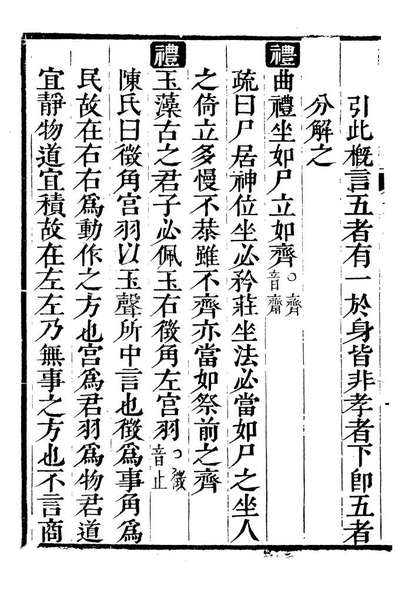 引此槪言五者有一於身皆非孝者下卽五者
分解之
禮
曲禮坐如尸立如齊。齊音齋
疏曰尸居神位坐必矜莊坐法必當如尸之坐人
之倚立多慢不恭雖不齊亦當如祭前之齊
禮
玉藻古之君子必佩玉右徵角左宮羽。徵音止
陳氏曰徵角宮羽以玉聲所中言也徵爲事角爲
民故在右右爲動作之方也宮爲君羽爲物君道
宜靜物道宜積故在左左乃無事之方也不言商